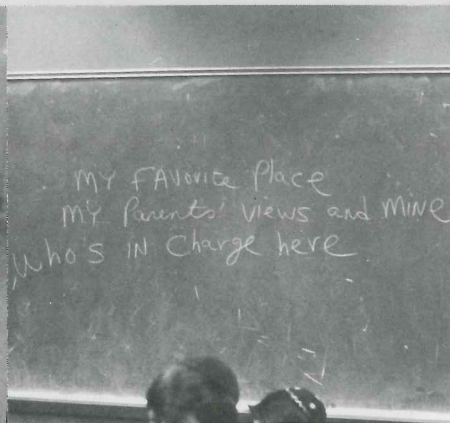 MY FAVorite Place
MY Parents' Views and MINE
Who's IN Charge here